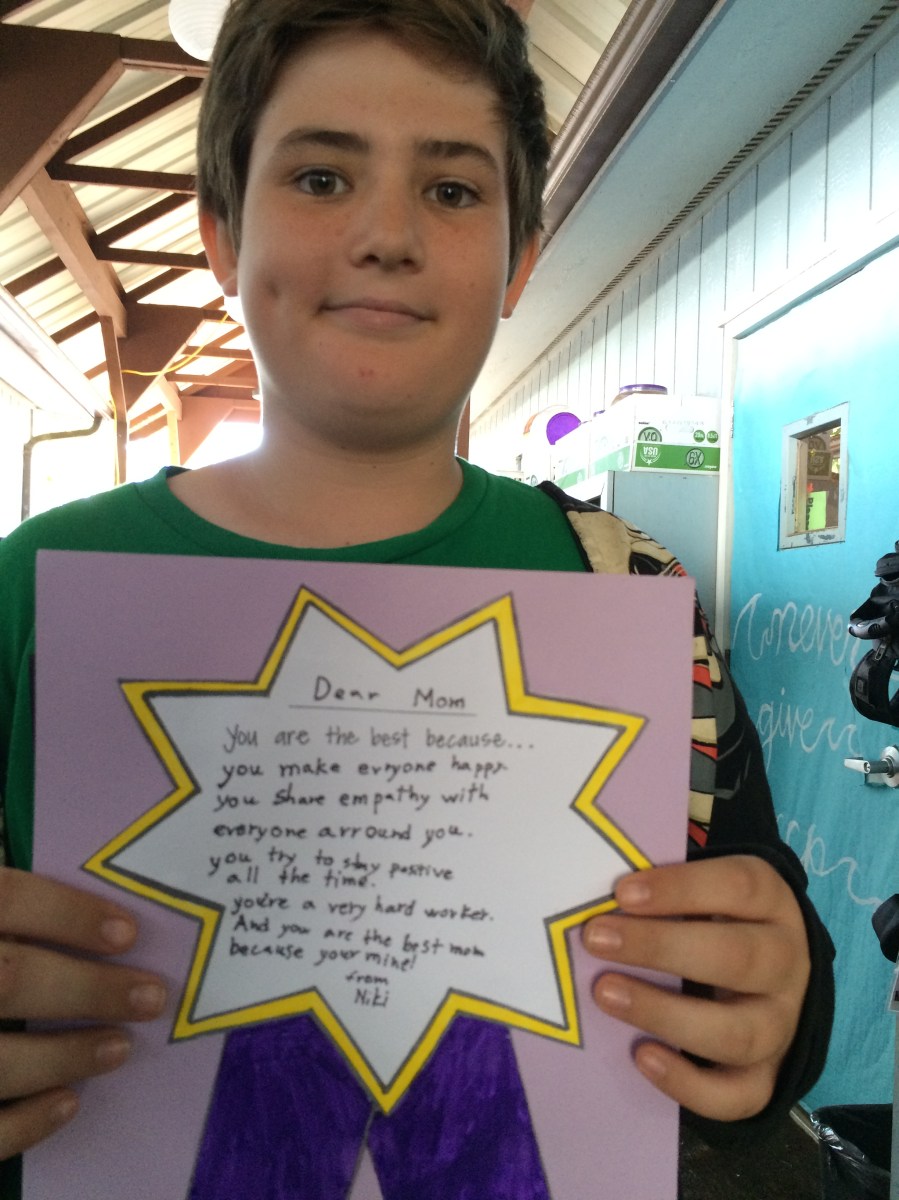 Dear Mom
you are the best because...
you make evryone happy
you share empathy with
everyone arround you.
you try to stay positive
all the time.
you're a very hard worker.
And you are the best mom
because your mine!
from
Niki
never
give
up
USA